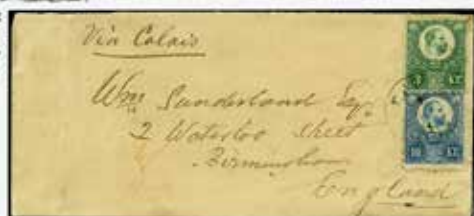 Via Calais
Wm Sunderland Esq
2 Waterloo Street
Birmingham
England
3 KR
10 KR